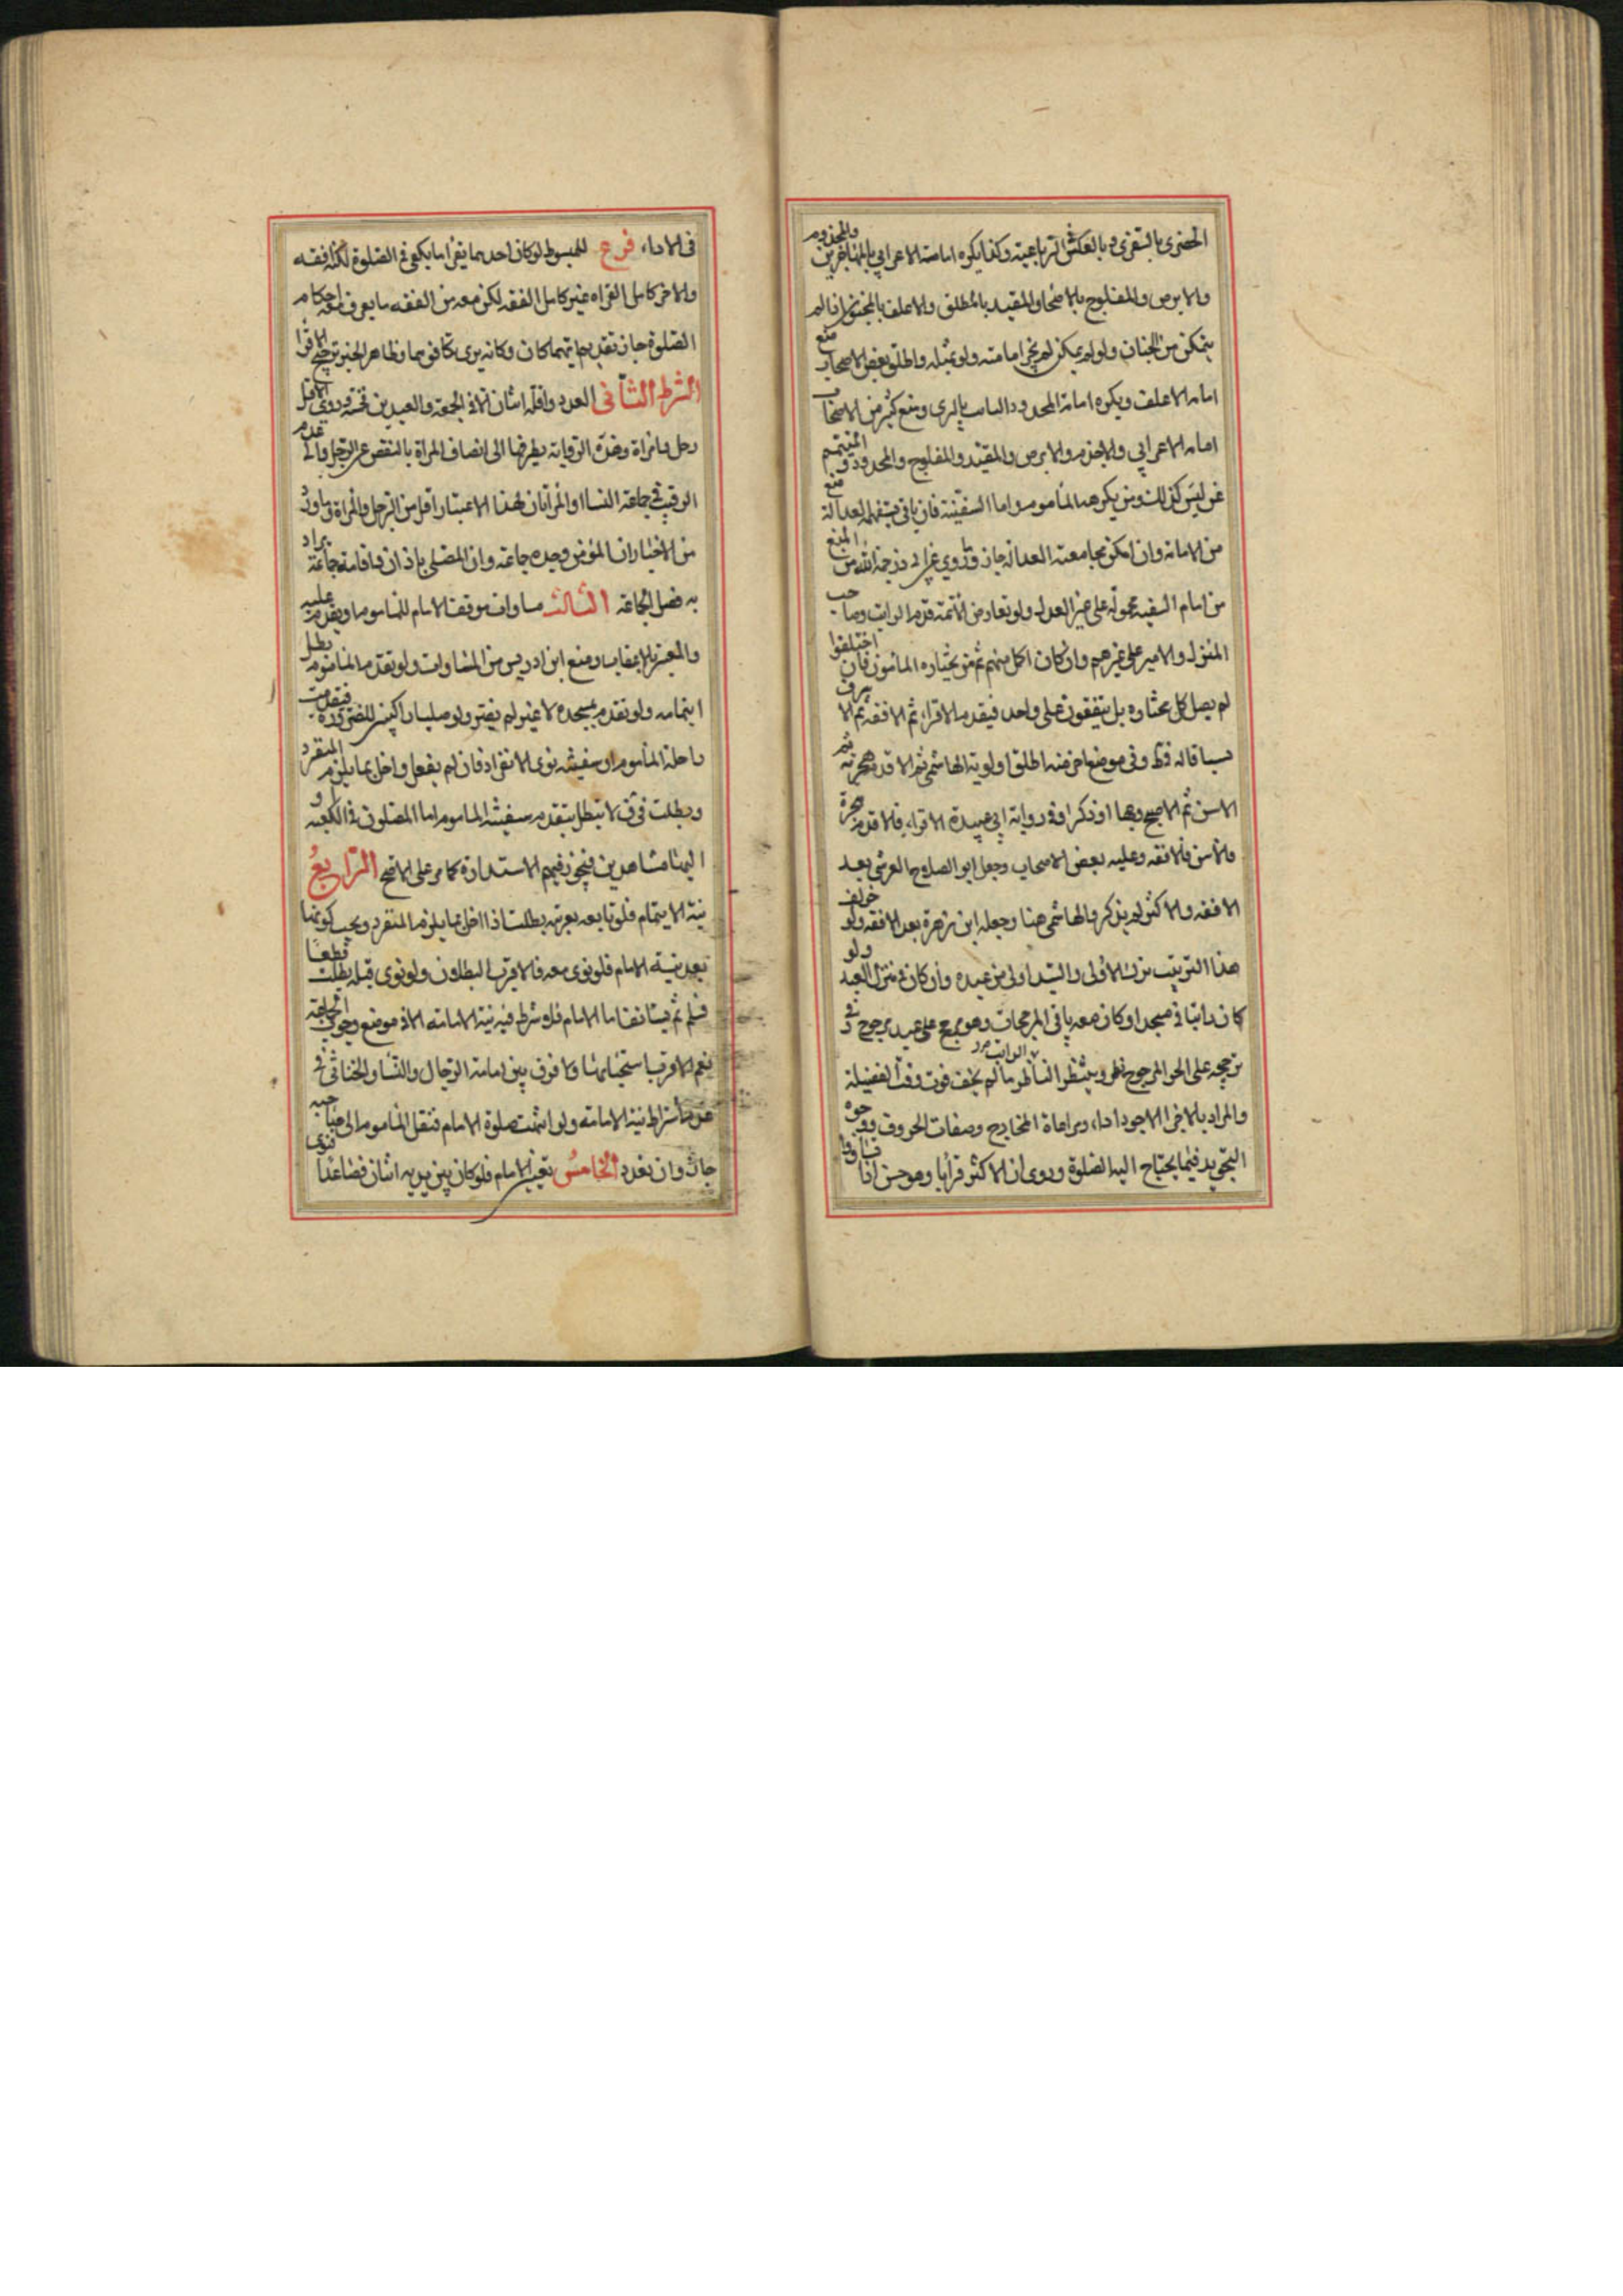 الحضري بالسفري و بالعكس في الرباعية وكذا يكره امامة الاعرابي بالمهاجرين والمجذوم
والابرص والمفلوج بالاصحا والمقيد بالمطلق والاغلف بالمختون اذا لم
يتمكن من الختان ولو لم يمكن لم يجز امامته ولو بمثله واطلق بعض الاصحاب منع
امامه الاغلف ويكره امامة المحدود التايب بالبري ومنع كثير من الاصحاب
امامه الاعرابي والاجذم والابرص والمقيد والمفلوج والمحدود و المتيمم
عن ليس كذلك ومن يكرهه المأموم واما السفينة فان يافى منع العدالة
من الامامة وان امكن مجامعته العدالة جاز و روي عن ابي ذر رحمة الله من المنع
من امام السفيه محمول على غير العدل ولو تعارض الائمة قدم الراتب وصاحب
المنزل والامير على غيرهم وان كان اكمل منهم ثم من يختاره المأمون فان اختلفوا
لم يصل كل مختاره بل يتفقون على واحد فيقدم الاقراء ثم الافقه ثم الاشرف
نسبا قاله في ط وفي موضع اخر منه اطلق اولوية الهاشمي ثم الاقدم هجرة ثم
الاسن ثم الاصبح وجها او ذكرا وفي رواية ابي عبيدة الاقراء فالاقدم هجرة
فالاسن فالافقه وعليه بعض الاصحاب وجعل ابو الصلاح القرشي بعد
الافقه والاكثر لم يذكر والهاشمي هنا وجعله ابن زهرة بعد الافقه ولو خولف
هذا الترتيب ترك الاولى والسيد اولى من عبده وان كان في منزل العبد ولو
كان راتبا في مسجد او كان معه باقي المرجحات وهو يرجح على عبد مرجوح و في
ترجحه على الحر المرجوح نظر وينتظر الراتب ما لم يخف فوت وقت الفضيلة
والمراد بالاقرا الاجود اداء ومراعاة المخارج وصفات الحروف ووجوه
التجويد فيما يحتاج اليه الصلوة وروي ان الاكثر قرآنا وهو حسن اذا تساووا
في الاداء فرع للمبسوط لو كان احدهما يقرا ما يكفي في الصلوة لكنه افقه
والاخر كامل القراه غير كامل الفقه لكن معه من الفقه ما يعرف معه احكام
الصلوة جاز تقديم ايهما كان وكانه يرى تكافوهما وظاهر الخبر ترجيح الاقرا
الشرط الثاني العدد واقله اثنان الا في الجمعة والعيدين فخمسة وروي الاقل
رجل وامراة وهذه الرواية بطرفها الى اتصاف المراة بالنقص عن الرجل والى عدم
الرقيب في جماعة النسا او المرأتان لهذا الاعتبار اقل من الرجل والمراة وما ورد
من الاخبار ان المؤمن وحده جماعة وان المصلي باذان واقامة جماعة يراد
به فضل الجماعة الثالث مساواة موقف الامام للماموم او يقدم عليه
والمعتبر بالاعقاب ومنع ابن ادريس من المساواة ولو تقدم المأموم بطل
ايتمامه ولو تقدم بمسجده لا غير لم يضر ولو صليا راكبين للضرورة فتقدمت
راحلة المأموم او سفينته نوى الانفراد فان لم يفعل واخل بما يلزم المنفرد
وبطلت في ف لا تبطل بتقدم سفينة الماموم اما المصلون في الكعبة او
اليها مشاهدين فيجوز فيهم الاستدارة كما مر على الاصح الرابع
نية الايتمام فلو تابعه بغير نية بطلت اذا اخل بما يلزم المنفرد ويجب كونها
بعد نية الامام فلو نوى معه فالاقرب البطلان ولو نوى قبله بطلت قطعا
فيسلم ثم يستانف اما الامام فلا يشترط فيه نية الامامة الا في موضع وجوب الجماعة
نعم الاقرب استحبابها ولا فرق بين امامة الرجال والنسا والخناثى في
عدم اشتراط نية الامامة ولو اتمت صلوة الامام فنقل المأموم الى صاحبه
جاز وان تعدد الخامس تعيين الامام فلو كان بين يديه اثنان فصاعدا فنوى